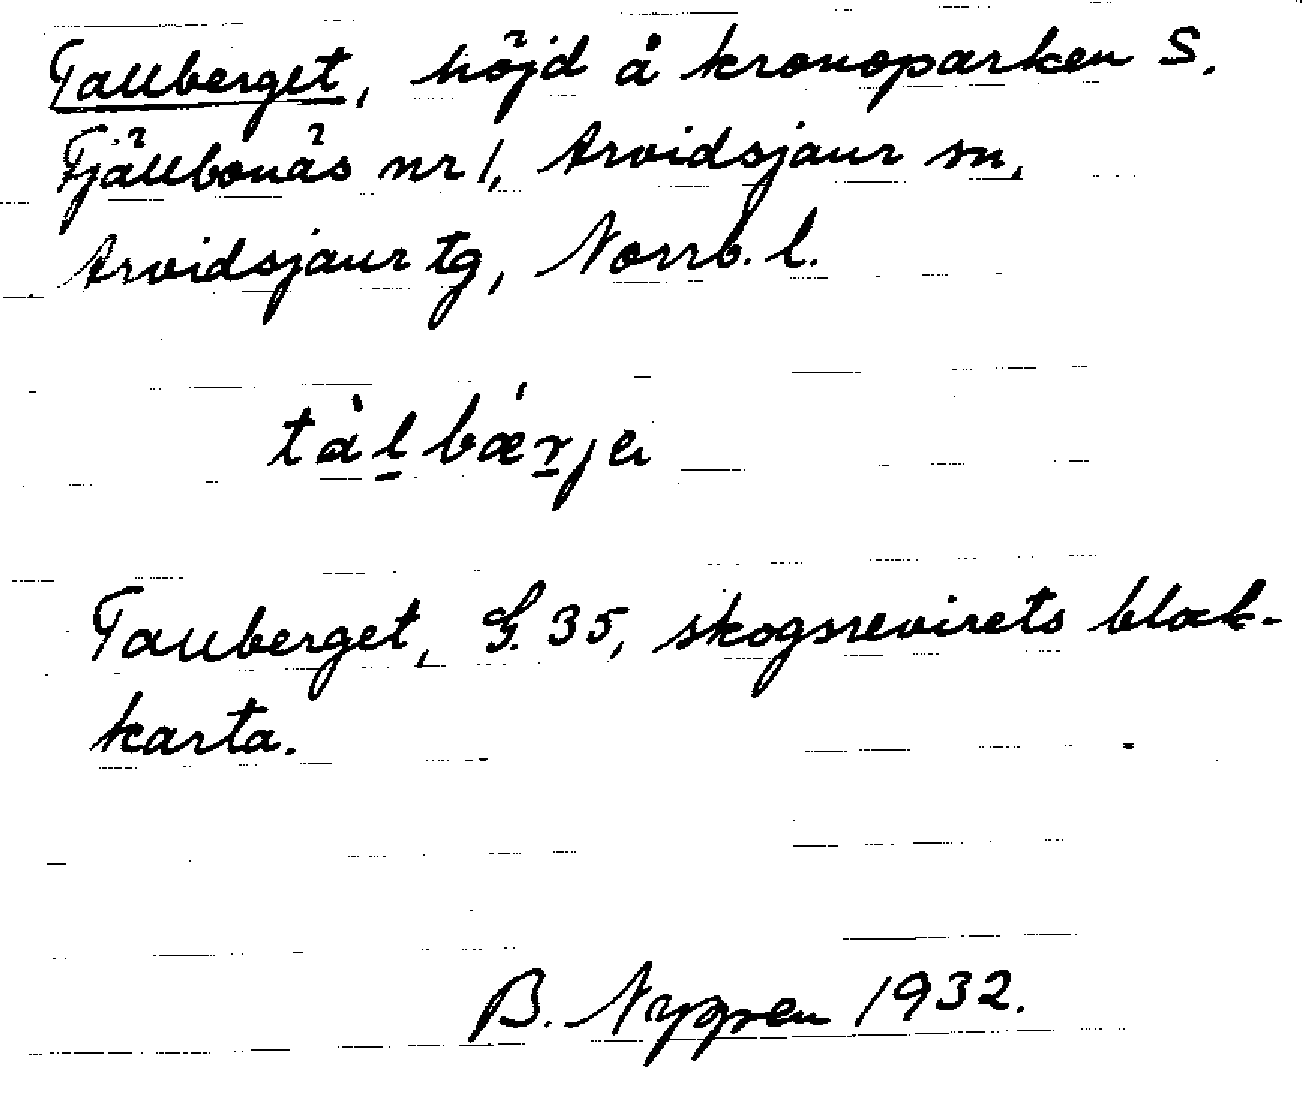 Tallberget, höjd å kronoparken S.
Fjällbonäs nr 1, Arvidsjaur sn,
Arvidsjaur tg, Norrb. l.
tàl̲bǽr̲je
Tallberget, G. 35, skogsrevirets blok-
karta.
B. Nygren 1932.